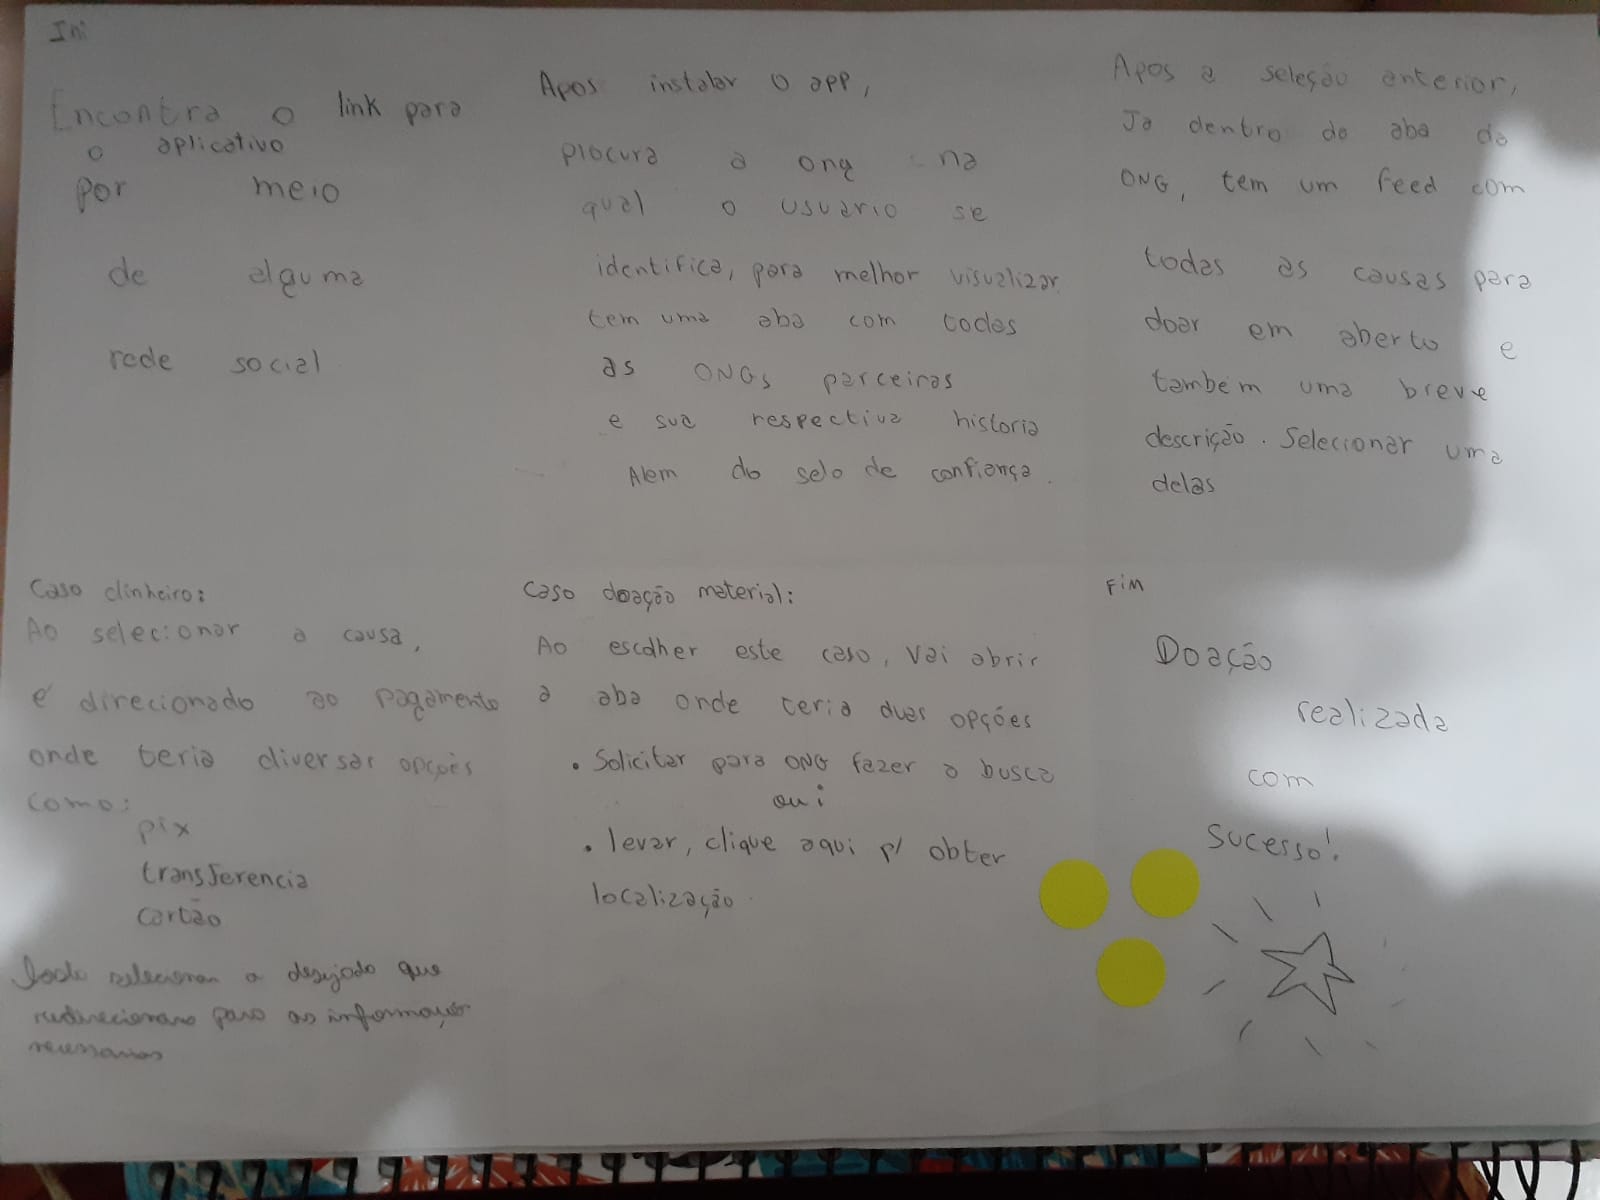 Ini
Encontra o link para
o aplicativo
por meio
de alguma
rede social
Apos instalar o app,
procura a ong na
qual o usuario se
identifica, para melhor visualizar
tem uma aba com todas
as ONGs parceiras
e sua respectiva historia
Alem do selo de confiança.
Apos a seleção anterior,
Ja dentro da aba da
ONG, tem um feed com
todas as causas para
doar em aberto e
também uma breve
descrição. Selecionar uma
delas
Caso dinheiro:
Ao selecionar a causa,
é direcionado ao pagamento
onde teria diversas opções
como:
pix
transferencia
cartão
selecionar a desejada que
redirecionara para as informações
necessarias
Caso doação material:
Ao escolher este caso, vai abrir
a aba onde teria duas opções
• Solicitar para ONG fazer a busca
ou:
• levar, clique aqui p/ obter
localização.
Fim
Doação
realizada
com
sucesso!